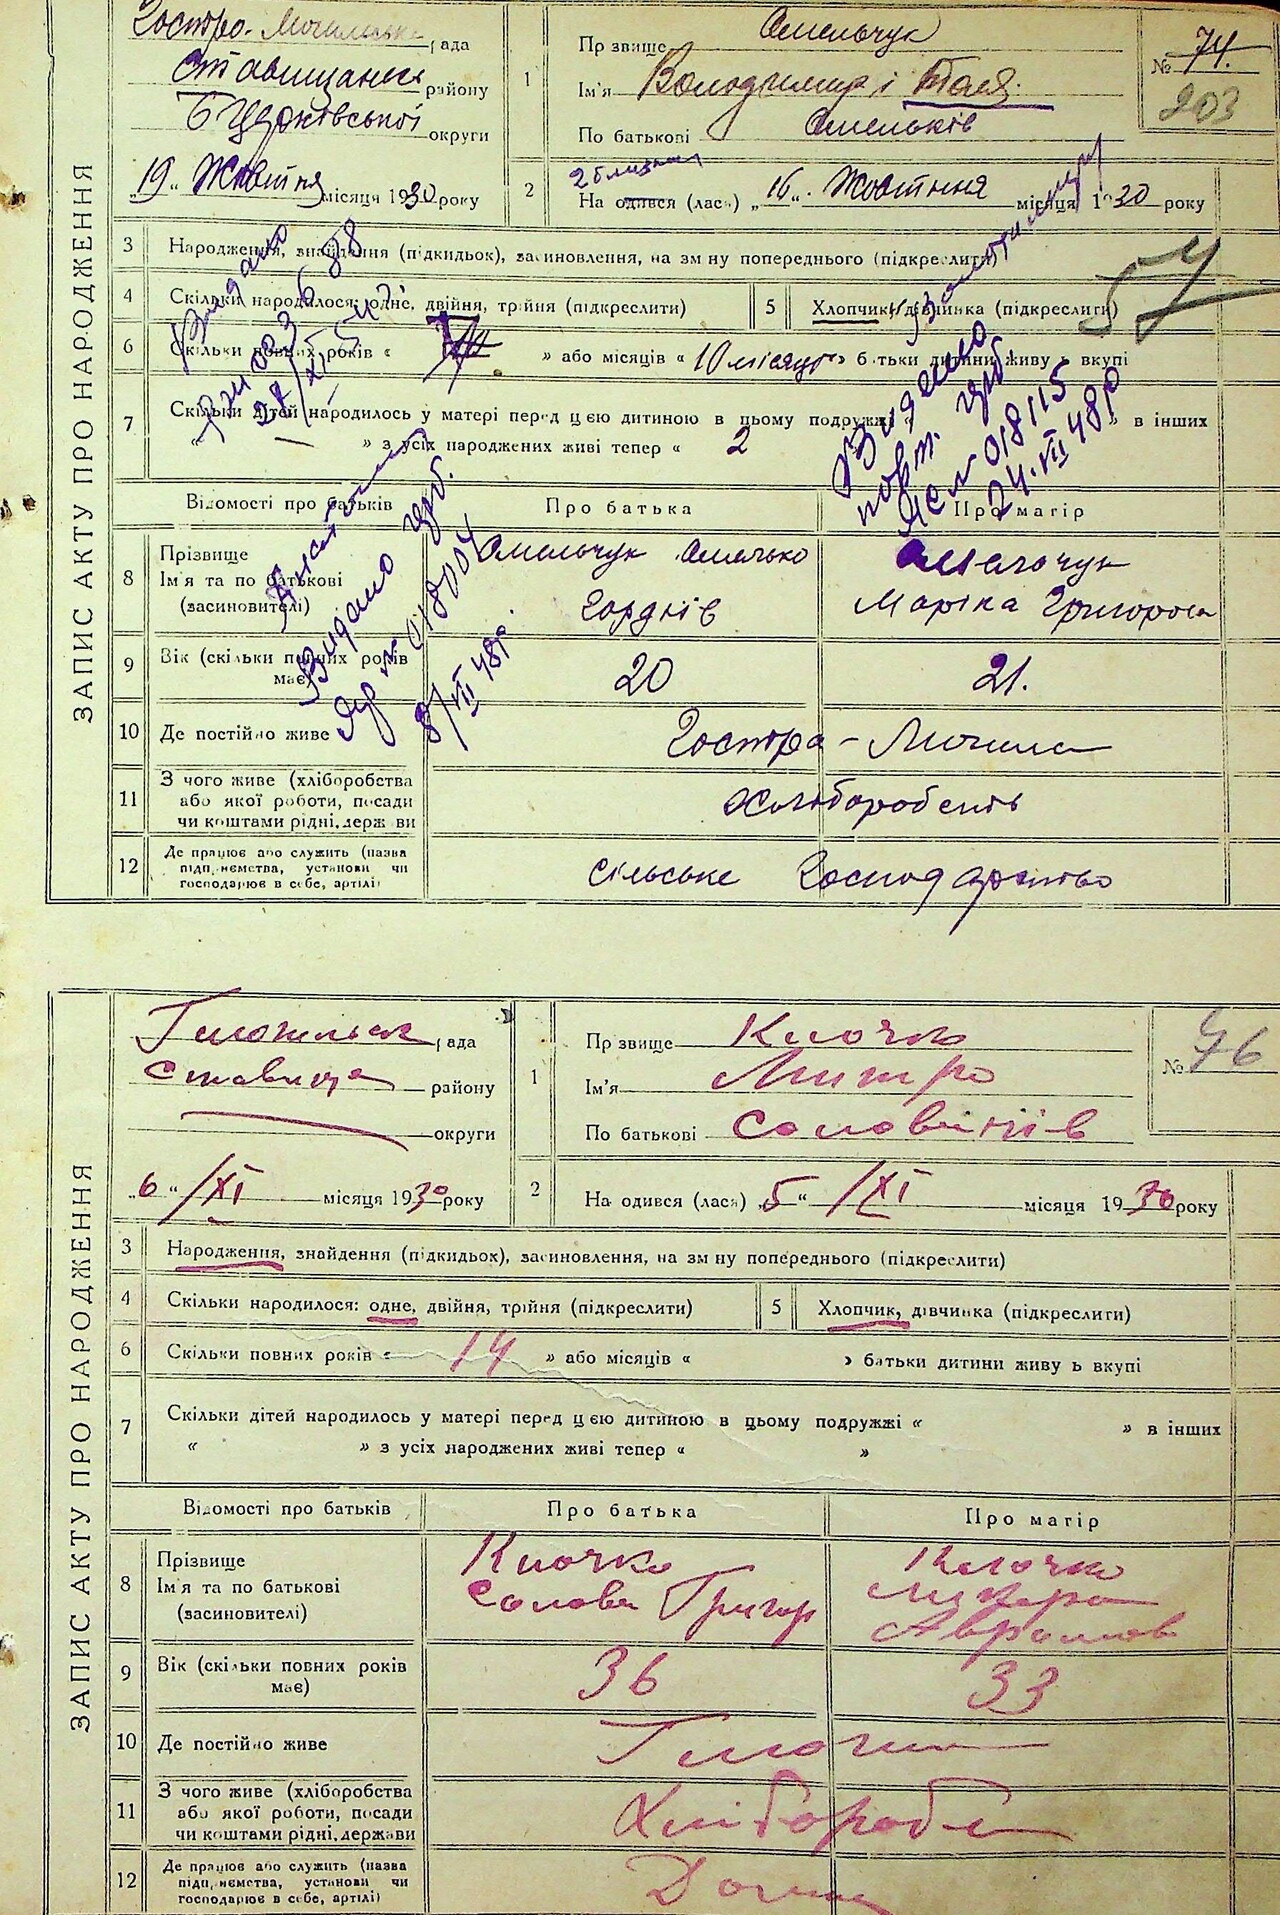 ЗАПИС АКТУ ПРО НАРОДЖЕННЯ
Гостро-Могильська рада
Ставищанськ району
Б Церківської округи
"19" Жовтня місяця 1930 року
1
Прізвище Омельчук
Ім'я Володимир і Толя.
По батькові Омельків
№ 74.
203
2 близнят
2 Народився (лась) "16" Жовтня місяця 1930 року
3 Народження, знайдення (підкидьок), засиновлення, на зміну попереднього (підкреслити)
4 Скільки народилося: одне, двійня, трійня (підкреслити)
5 Хлопчик, дівчинка (підкреслити)
6 Скільки повних років « » або місяців «10 місяців» батьки дитини живуть вкупі
7 Скільки дітей народилось у матері перед цією дитиною в цьому подружжі « » в інших
« » з усіх народжених живі тепер « 2
Видано
Видано
повт.
ЯС № 018115
24.VII 48р
Видано
№ 018004
8/VII 48р.
Відомості про батьків
Про батька
Про матір
8 Прізвище
Ім'я та по батькові
(засиновителі)
Омельчук Омелько
Гордіїв
Омельчук
Маріка Григоров
9 Вік (скільки повних років
має)
20
21.
10 Де постійно живе
Гостра-Могила
11 З чого живе (хліборобства
або якої роботи, посади
чи коштами рідні, держави
Хліборобств
12 Де працює або служить (назва
підприємства, установи чи
господарює в себе, артілі)
сільське господарство
ЗАПИС АКТУ ПРО НАРОДЖЕННЯ
рада
Ставище району
округи
"6" /XI місяця 1930 року
1
Прізвище Клочко
Ім'я Митро
По батькові Соловіїв
№ 76
2 Народився (лась) "5" /XI місяця 1930 року
3 Народження, знайдення (підкидьок), засиновлення, на зміну попереднього (підкреслити)
4 Скільки народилося: одне, двійня, трійня (підкреслити)
5 Хлопчик, дівчинка (підкреслити)
6 Скільки повних років « 14 » або місяців « » батьки дитини живуть вкупі
7 Скільки дітей народилось у матері перед цією дитиною в цьому подружжі « » в інших
« » з усіх народжених живі тепер « »
Відомості про батьків
Про батька
Про матір
8 Прізвище
Ім'я та по батькові
(засиновителі)
Клочко
Солови Григор
Клочко
Лукера
Аврамов
9 Вік (скільки повних років
має)
36
33
10 Де постійно живе
11 З чого живе (хліборобства
або якої роботи, посади
чи коштами рідні, держави
Хлібороб
12 Де працює або служить (назва
підприємства, установи чи
господарює в себе, артілі)
Дома